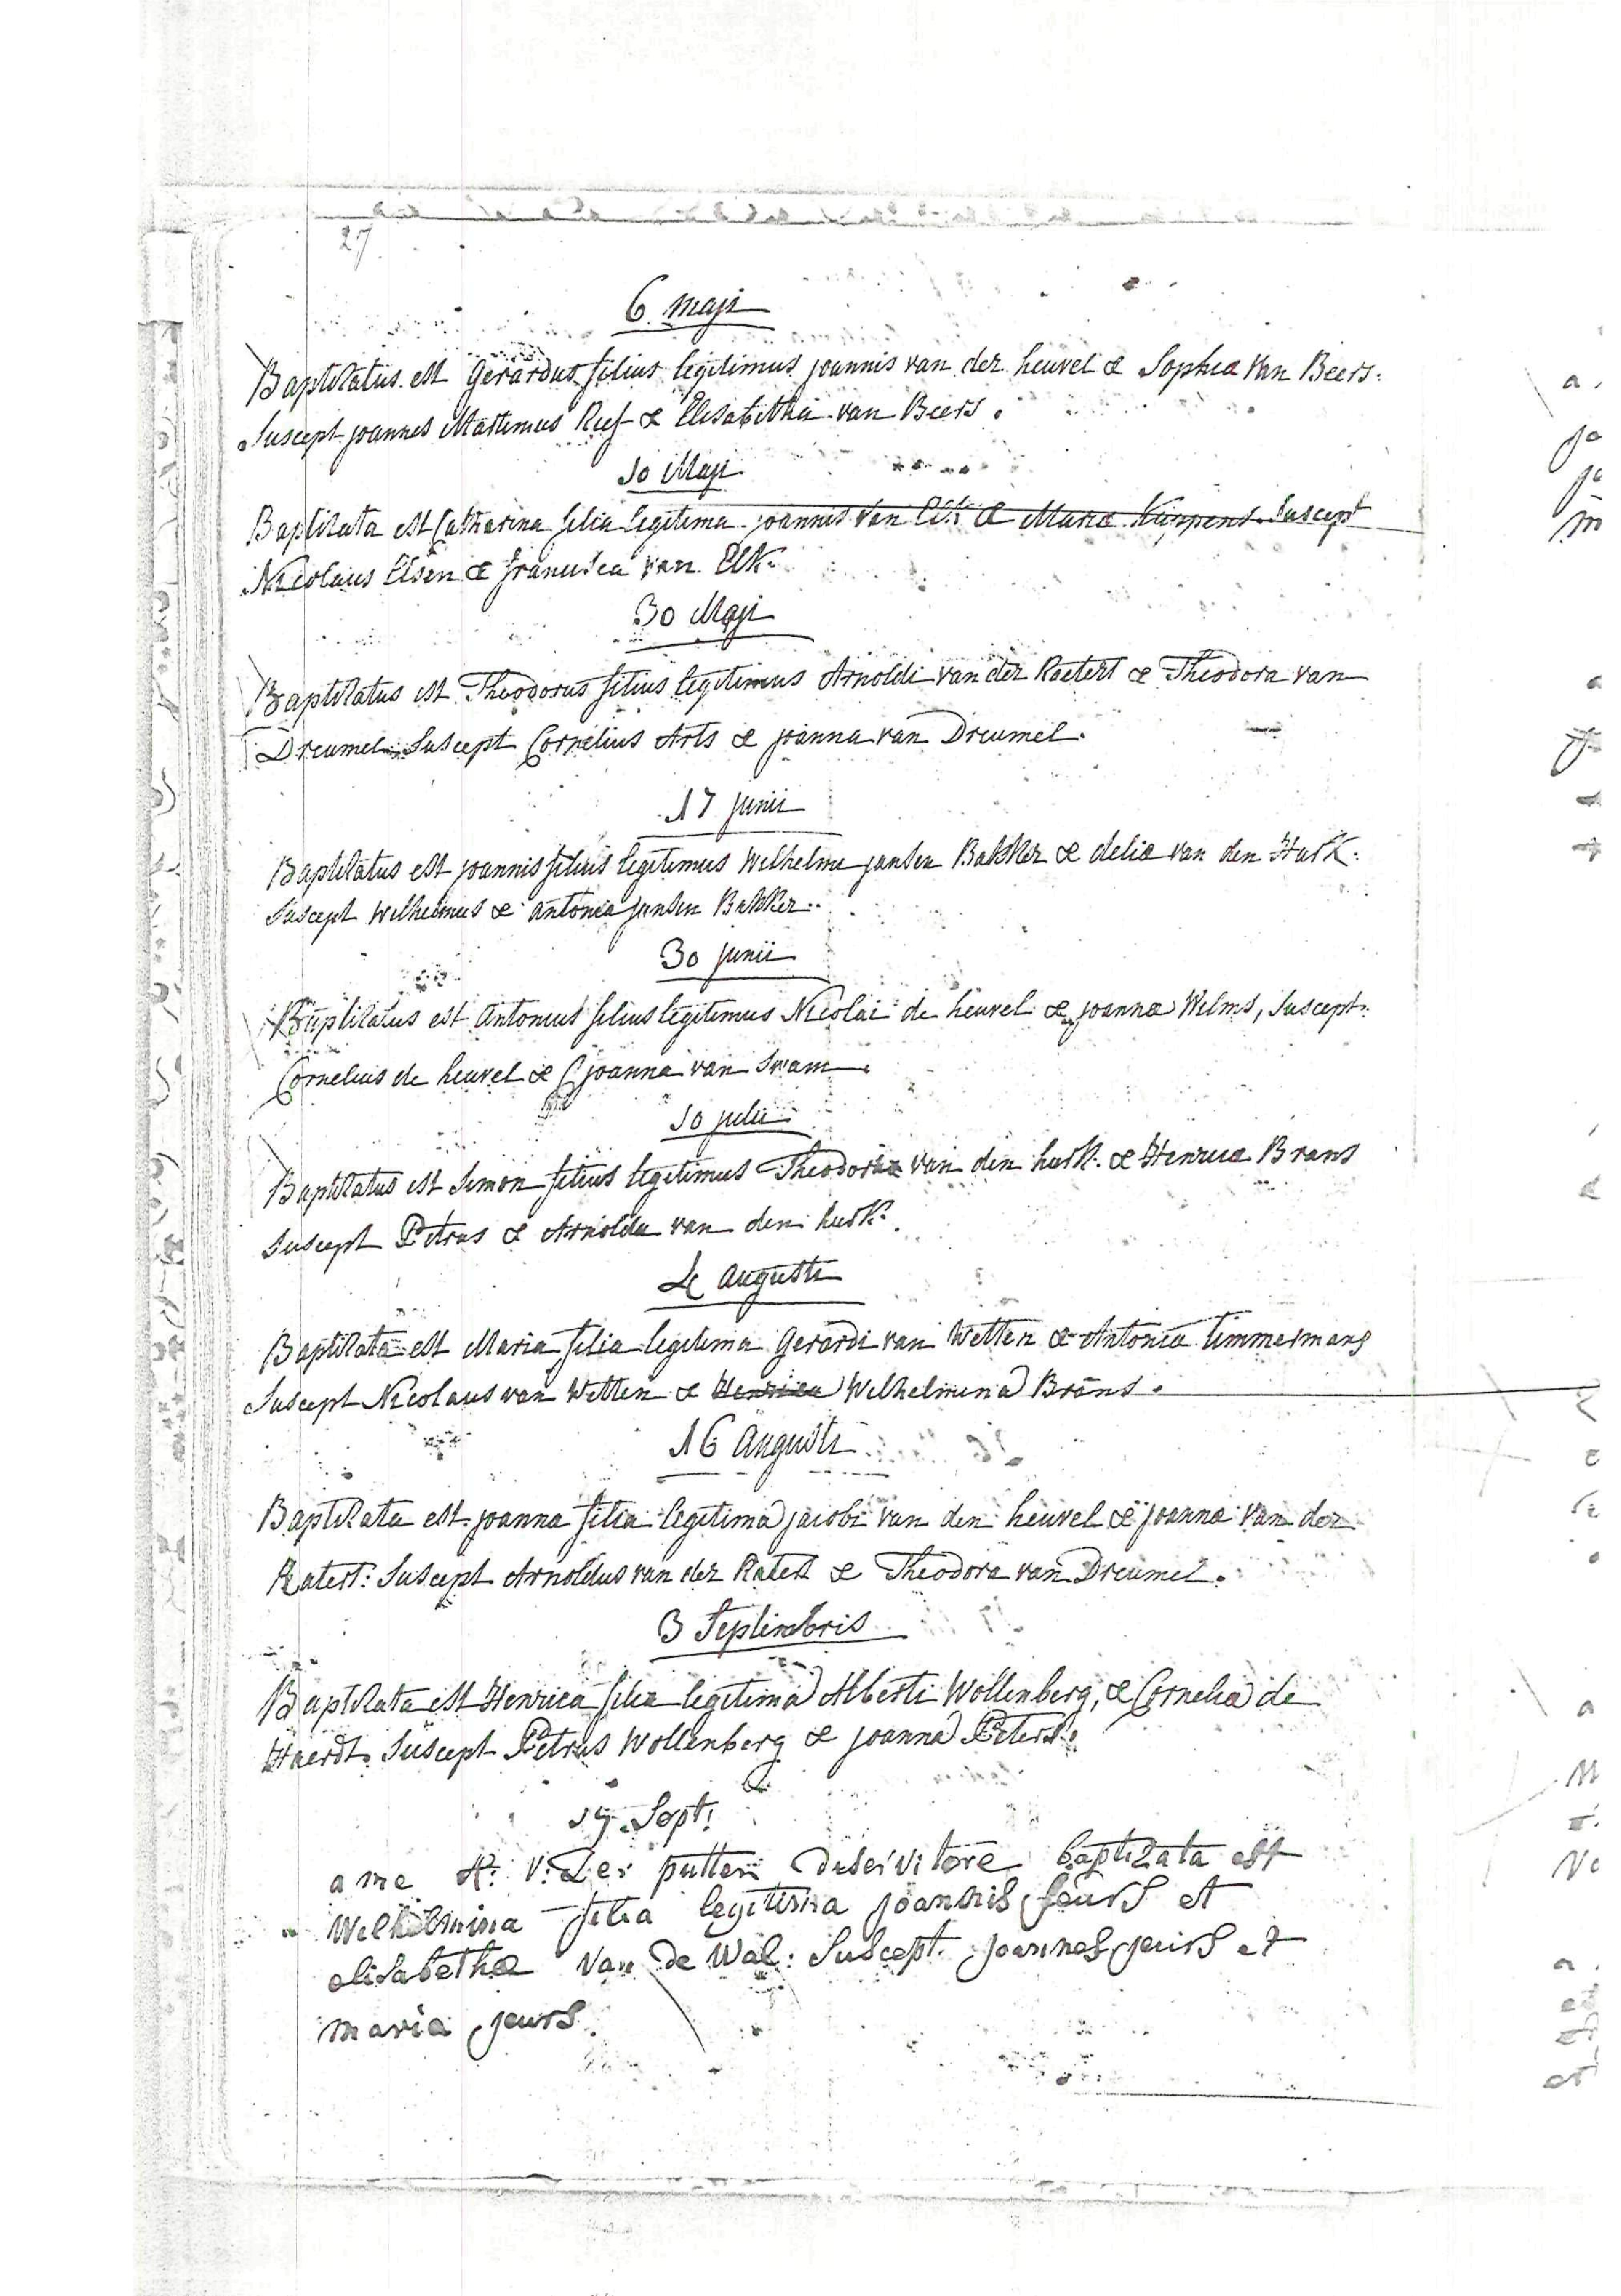 27
6 maji
Baptizatus est Gerardus filius legitimus joannis van der heuvel & Sophiæ van Beers.
Suscept joannes Martinus Reef & Elisabetha van Beers.
10 Maji
Baptizata est Catharina filia legitima joannis van Elk & Mariæ Kuppens. Suscept
Nicolaus Elsen & francisca van Elk.
30 Maji
Baptizatus est Theodorus filius legitimus Arnoldi van der Roetert & Theodora van
Dreumel. Suscept Cornelius Arts & joanna van Dreumel.
17 junii
Baptizatus est joannis filius legitimus Wilhelmi jansen Bakker & deliæ van den Hurk:
Suscept Wilhelmus & antonia jansen Bakker.
30 junii
Baptizatus est Antonius filius legitimus Nicolai de heuvel & joannæ Wilms, Suscept:
Cornelius de heuvel & joanna van Swam.
10 julii
Baptizatus est Simon filius legitimus Theodori van den hurk & Henricæ Brans
Suscept Petrus & Arnolda van den hurk.
4 augusti
Baptizata est Maria filia legitima Gerardi van Wetten & Antoniæ Timmermans
Suscept Nicolaus van Wetten & Henrica Wilhelmina Brans.
16 augusti
Baptizata est joanna filia legitima jacobi van den heuvel & joannæ van der
Ratert: Suscept Arnoldus van der Ratert & Theodora van Dreumel.
3 Septembris
Baptizata est Henrica filia legitima Alberti Wollenberg, & Cornelia de
Haerdt. Suscept Petrus Wollenberg & joanna Peters.
19 Sept:
a me A: V: Der putten deservitore baptizata est
Wilhelmina filia legitima joannis jeurs et
elisabethæ van de Wal: Suscept. joannes jeurs et
maria jeurs.